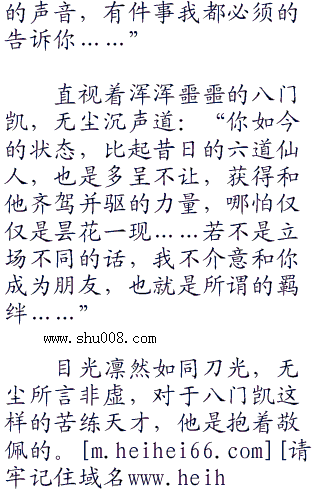 的声音，有件事我都必须的
告诉你……”
直视着浑浑噩噩的八门
凯，无尘沉声道：“你如今
的状态，比起昔日的六道仙
人，也是多呈不让，获得和
他齐驾并驱的力量，哪怕仅
仅是昙花一现……若不是立
场不同的话，我不介意和你
成为朋友，也就是所谓的羁
绊……”
www.shu008.com
目光凛然如同刀光，无
尘所言非虚，对于八门凯这
样的苦练天才，他是抱着敬
佩的。[m.heihei66.com][请
牢记住域名www.heih